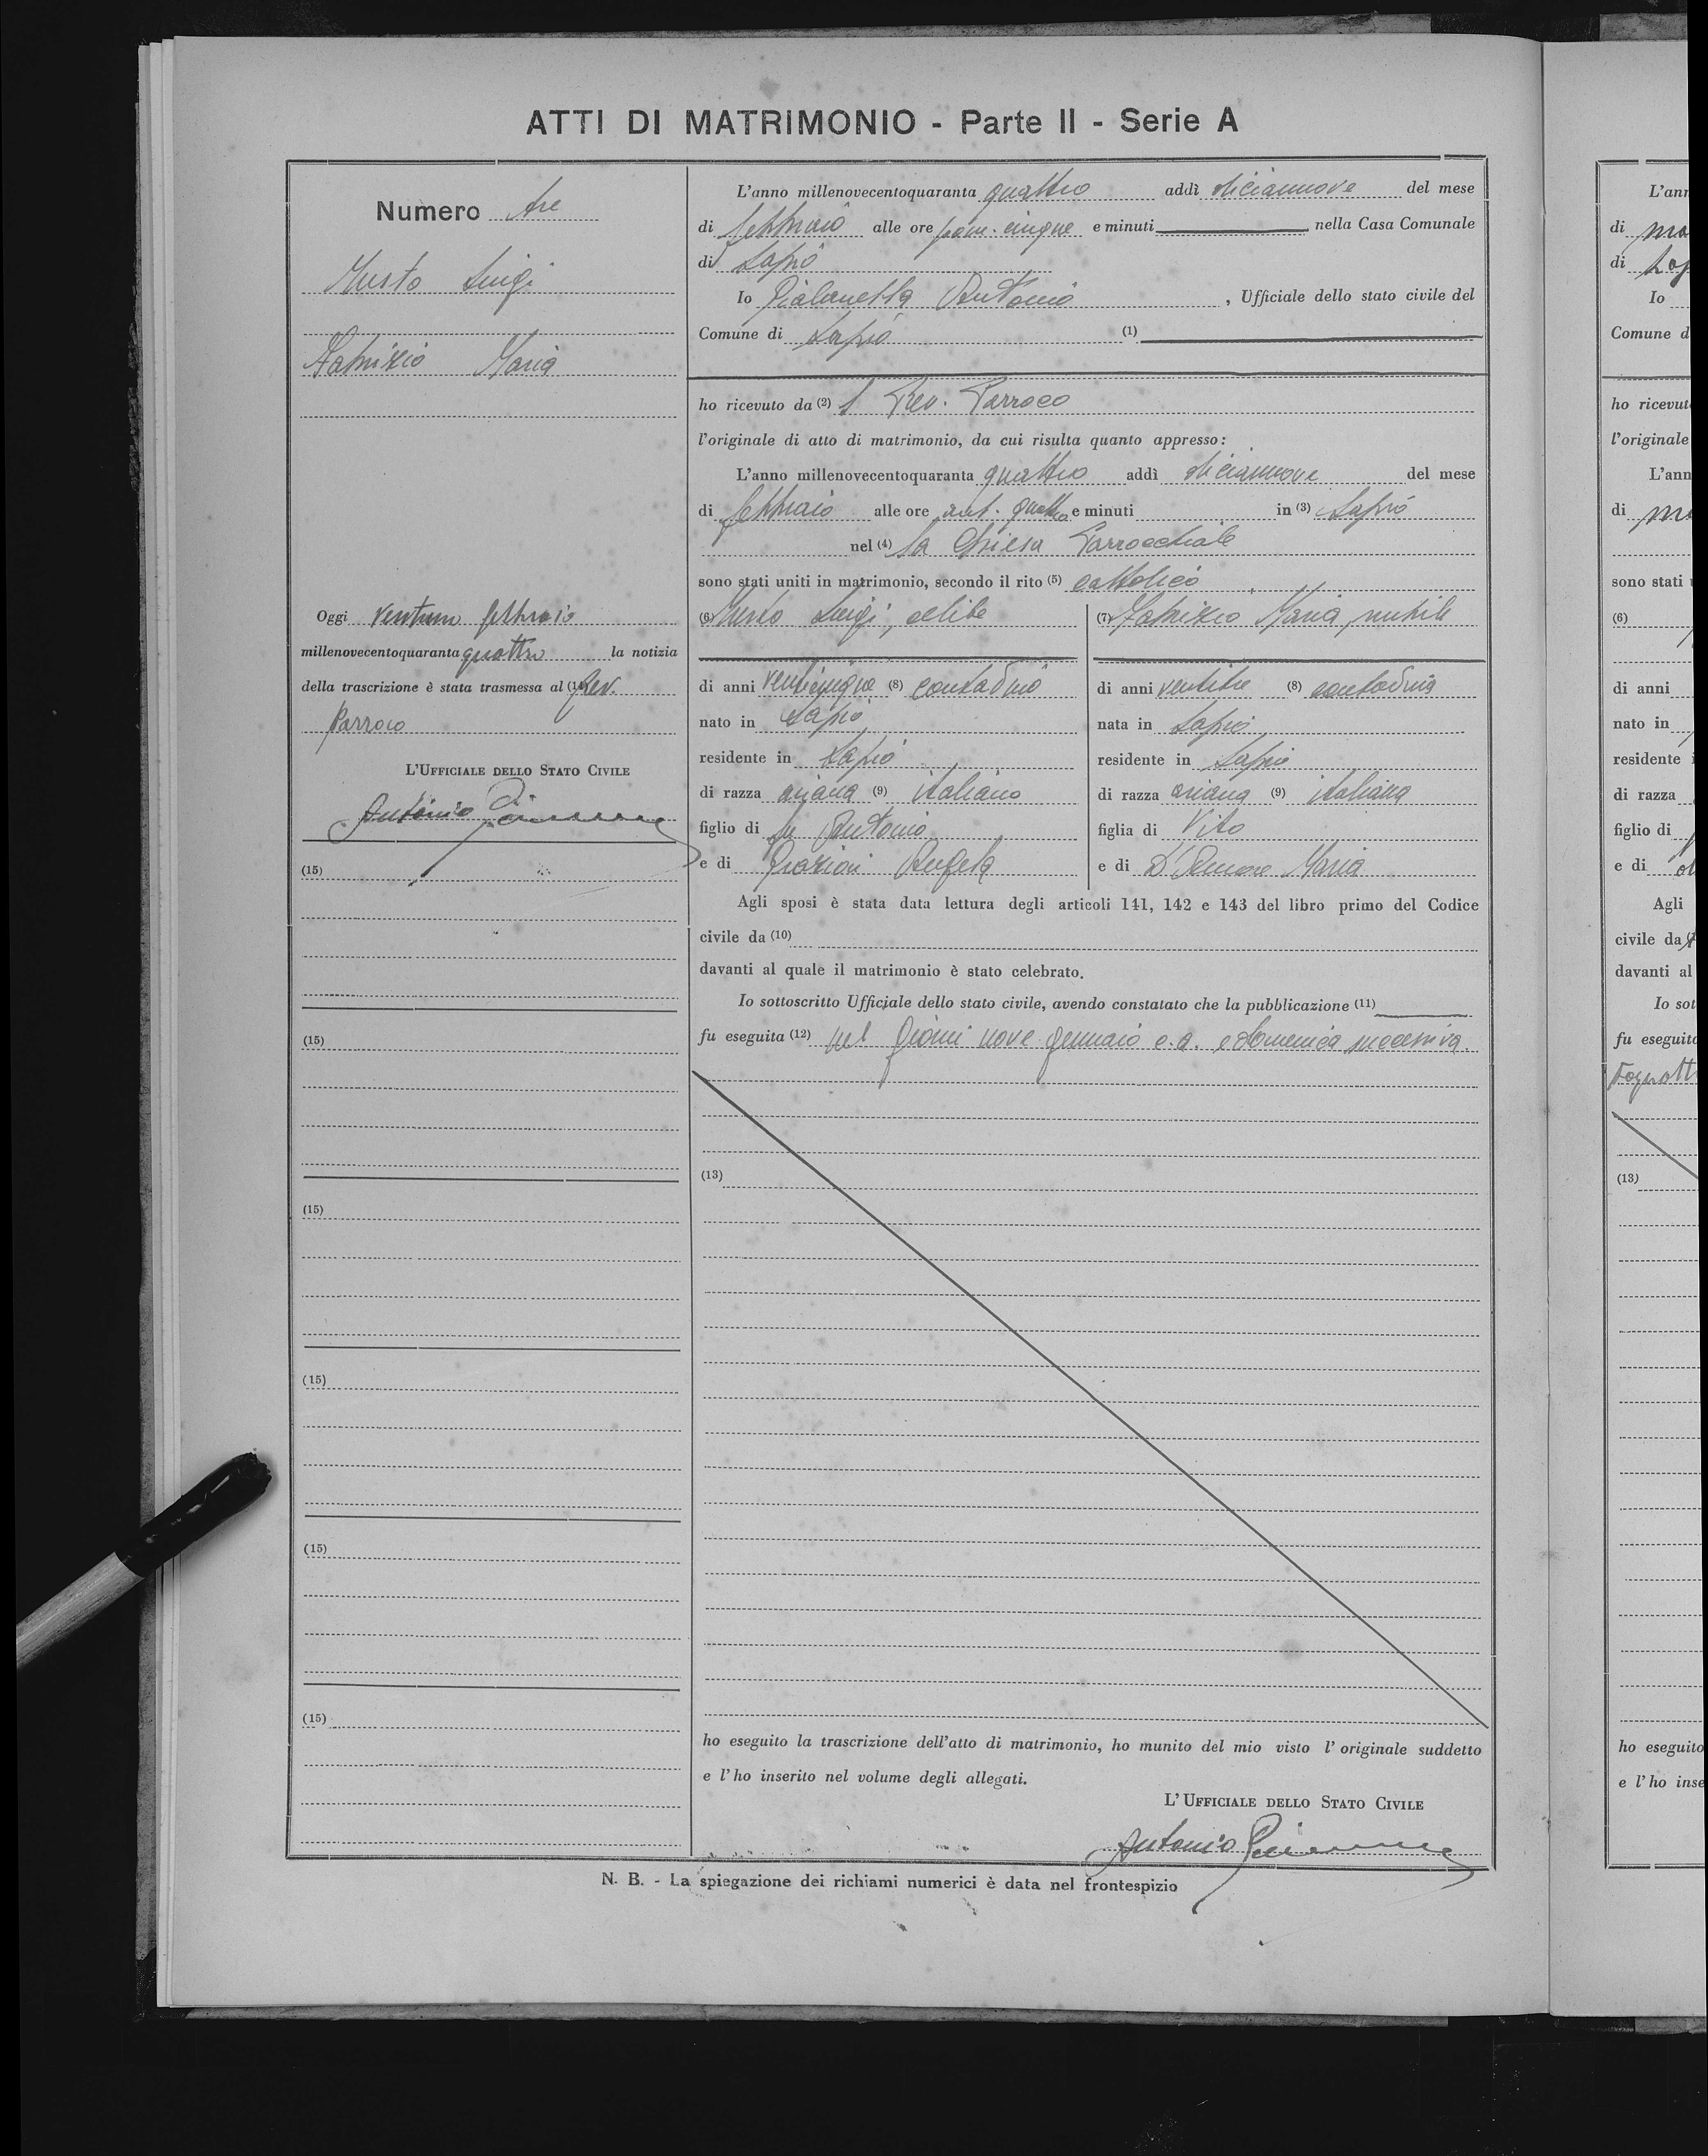 ATTI DI MATRIMONIO - Parte II - Serie A
Numero tre
Musto Luigi
Fabrizio Maria
Oggi ventuno febbraio
millenovecentoquaranta quattro la notizia
della trascrizione è stata trasmessa al (14) Rev.
Parroco
L'UFFICIALE DELLO STATO CIVILE
Antonio
(15)
(15)
(15)
(15)
(15)
(15)
L'anno millenovecentoquaranta quattro addì diciannove del mese
di febbraio alle ore pom. cinque e minuti nella Casa Comunale
di Lapio
Io Antonio, Ufficiale dello stato civile del
Comune di Lapio (1)
ho ricevuto da (2) l Rev. Parroco
l'originale di atto di matrimonio, da cui risulta quanto appresso:
L'anno millenovecentoquaranta quattro addì diciannove del mese
di febbraio alle ore ant. quattro e minuti in (3) Lapio
nel (4) la Chiesa Parrocchiale
sono stati uniti in matrimonio, secondo il rito (5) cattolico
(6) Musto Luigi, celibe
di anni venticinque (8) contadino
nato in Lapio
residente in Lapio
di razza ariana (9) italiano
figlio di fu Antonio
e di Angela
(7) Fabrizio Maria, nubile
di anni ventitre (8) contadina
nata in Lapio
residente in Lapio
di razza ariana (9) italiana
figlia di Vito
e di D'Amore Maria
Agli sposi è stata data lettura degli articoli 141, 142 e 143 del libro primo del Codice
civile da (10)
davanti al quale il matrimonio è stato celebrato.
Io sottoscritto Ufficiale dello stato civile, avendo constatato che la pubblicazione (11)
fu eseguita (12) nel giorni nove gennaio c.a. e domenica successiva.
(13)
ho eseguito la trascrizione dell'atto di matrimonio, ho munito del mio visto l'originale suddetto
e l'ho inserito nel volume degli allegati.
L'UFFICIALE DELLO STATO CIVILE
Antonio
N. B. - La spiegazione dei richiami numerici è data nel frontespizio
L'ann
di
di
Io
Comune d
ho ricevut
l'originale
L'ann
di
sono stati
(6)
di anni
nato in
residente
di razza
figlio di
e di
Agli
civile da
davanti al
Io sot
fu eseguit
(13)
ho eseguito
e l'ho inse